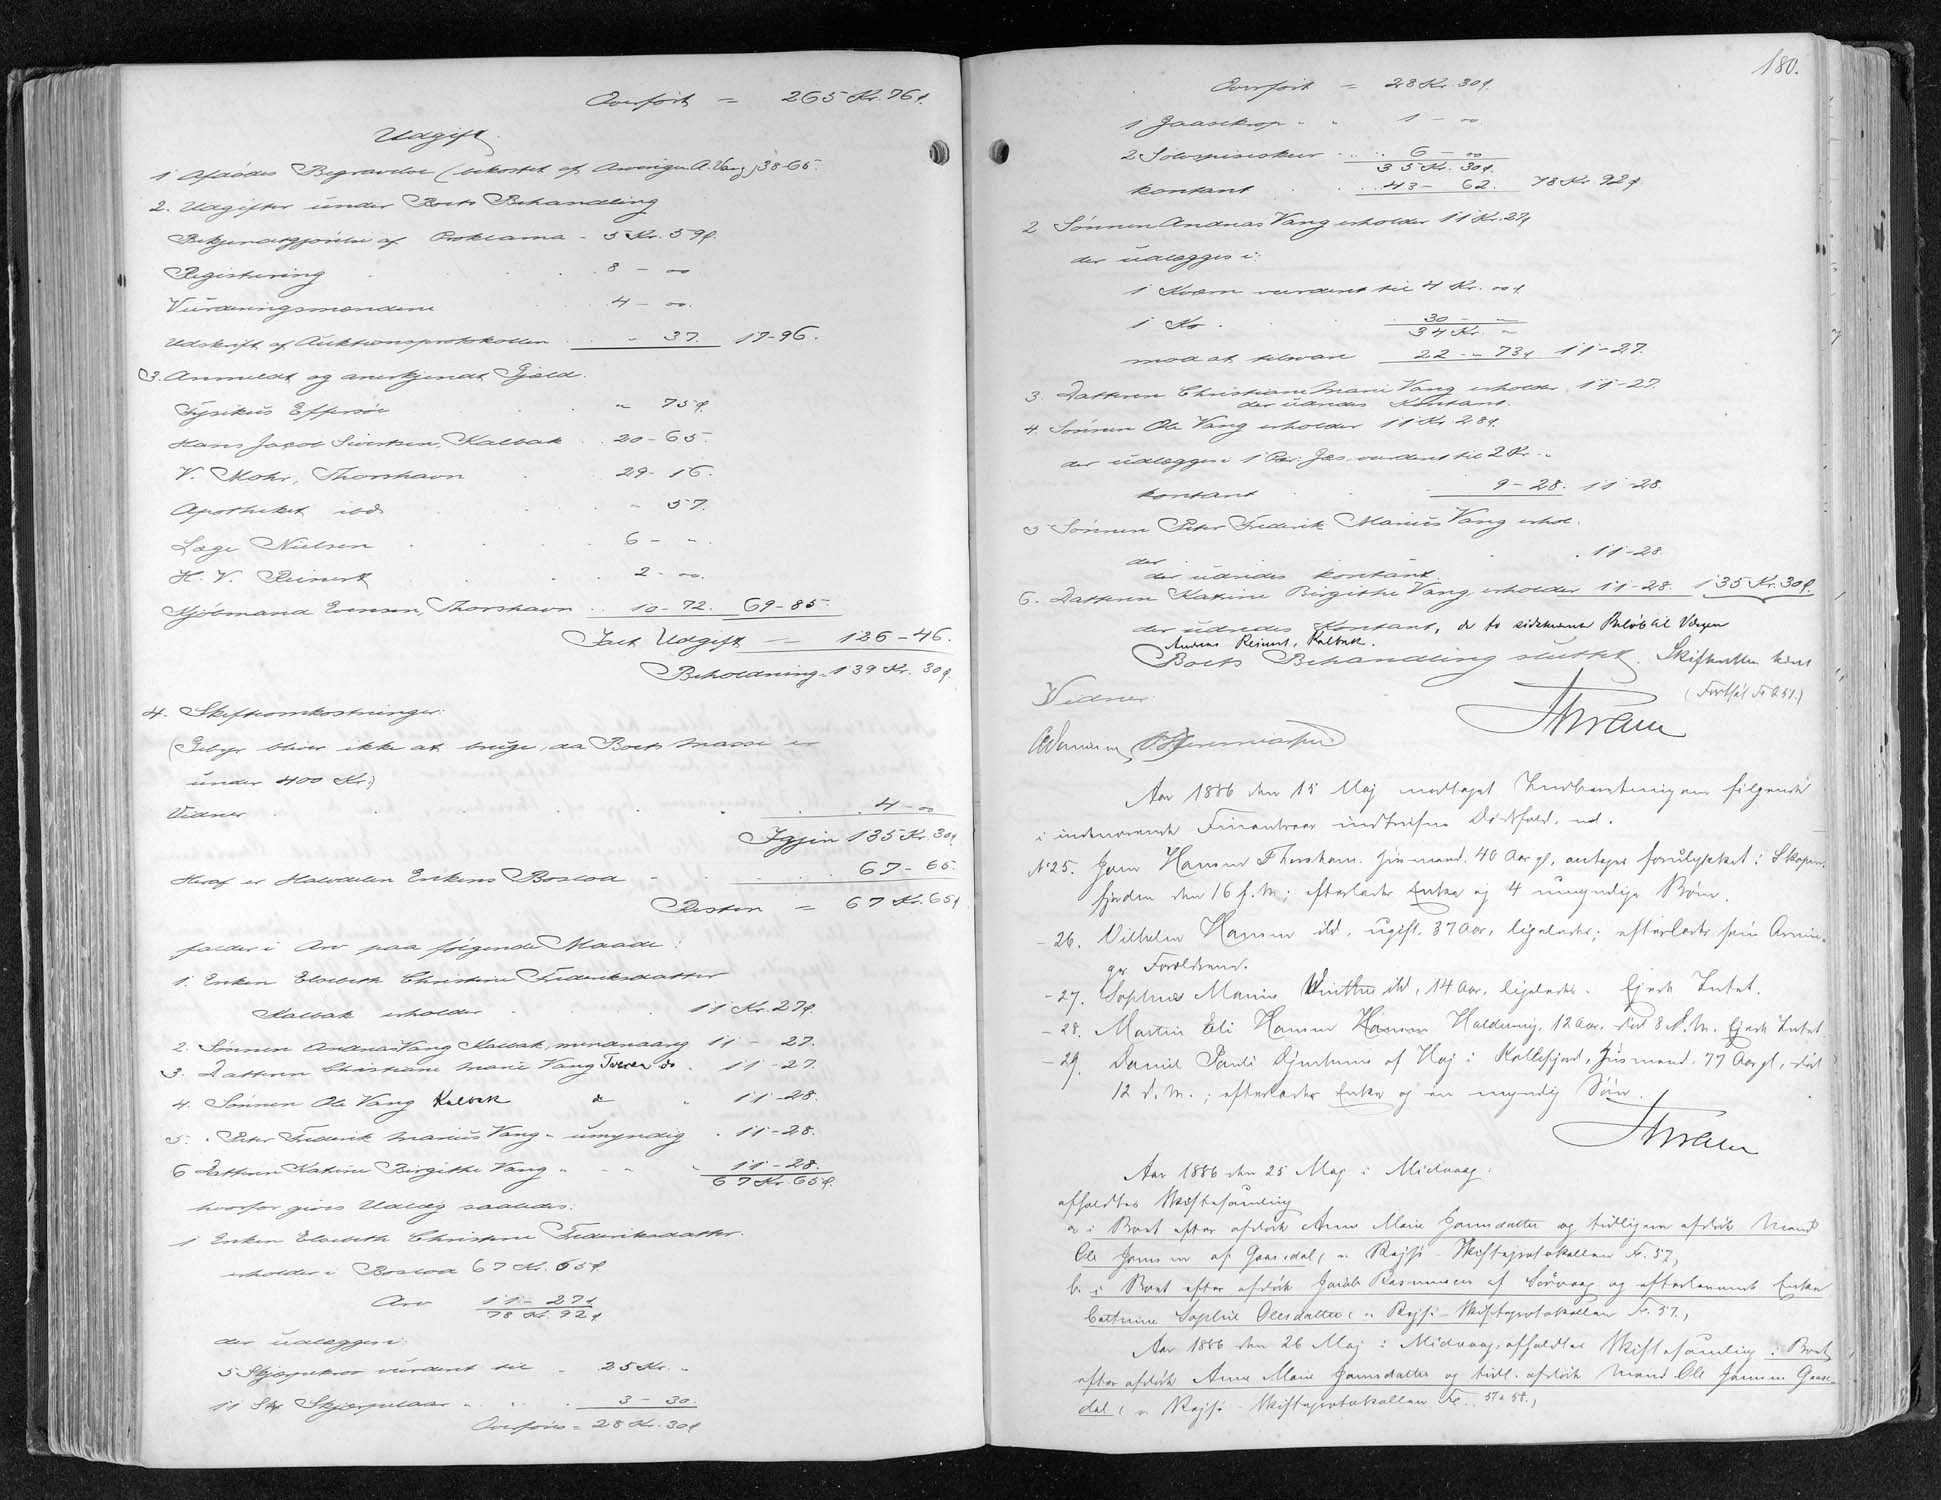 Overført = 265 Kr. 76 ø.
Udgift.
1 Afdødes Begravelse (bekostet af Arvingen A. Vang) 38-65.
2. Udgifter under Boets Behandling
Bekjendtgjørelse af Proklama - 5 Kr. 59 ø.
Registrering 8 - 00
Vurderingsmændene 4 - 00.
Udskrift af Auktionsprotokollen " 37. 17-96.
3. Anmeldt og anerkjendt Gjæld.
Fysikus Effersøe " 75 ø.
Hans Jacob Sivertsen, Kalbak 20-65.
V. Mohr, Thorshavn 29-16.
Apotheket ibd. " 57.
Læge Nielsen 6 - ".
H. V. Reinert 2 - 00.
Mjølmand Evensen, Thorshavn 10-72. 69-85.
Ialt Udgift = 126-46.
Beholdning 139 Kr. 30 ø.
4. Skifteomkostninger:
(Gebyr bliver ikke at bruge, da Boets Masse er
under 400 Kr.)
Vidner 4-00
Igjen 135 Kr. 30 ø
Heraf er Halvdelen Enkens Boslod 67-65.
Resten = 67 Kr. 65 ø.
falder i Arv paa følgende Maade:
1. Enken Elsebeth Christine Frederiksdatter
Kalbak erholder 11 Kr. 27 ø.
2. Sønnen Andreas Vang Kalbak, mindreaarig 11 - 27.
3. Datteren Christiane Marie Vang do. 11-27.
4. Sønnen Ole Vang Kalbak do " 11-28.
5. " Peter Frederik Marius Vang - umyndig 11-28.
6 Datteren Katrine Birgithe Vang " " 11-28.
67 Kr. 65 ø.
hvorfor gives Udlæg saaledes:
1 Enken Elsebeth Christine Frederiksdatter.
erholder i Boslod 67 Kr. 65 ø
Arv 11-27 ø
78 Kr. 92 ø
der udlægges i:
5 vurderet til 25 Kr. "
11 Stk 3-30.
Overføres = 28 Kr. 30 ø
180.
Overført = 28 Kr. 30 ø.
1 " " 1 - 00
2 6 - 00
35 Kr. 30 ø.
kontant 43-62. 78 Kr. 92 ø
2 Sønnen Andreas Vang erholder 11 Kr. 27 ø
der udlægges i:
1 Kværn vurderet til 4 Kr. 00 ø.
1 Ko 30 - "
34 Kr. "
mod at tilsvare 22 - 73 ø 11-27.
3. Datteren Christiane Marie Vang erholder 11-27.
der udredes Kontant.
4. Sønnen Ole Vang erholder 11 Kr. 28 ø.
der udlægges i 1 Par Gjæs vurderet til 2 Kr. "
kontant 9-28. 11-28.
5 Sønnen Peter Frederik Marius Vang erhol-
der 11-28
der udredes kontant
6. Datteren Katrine Birgithe Vang erholder 11-28. 135 Kr. 30 ø.
der udredes Kontant, de to sidstnævnte Beløb til Værgen
Andreas Reinert, Kalbak.
Boets Behandling sluttet. Skifteretten hævet
(Fortsat Fo 51.)
Vidner:
Aar 1886 den 15 Maj modtaget Indberetning om følgende
i indeværende Finantsaar indtrufne Dødsfald. ud.
No 25. Hansen Thorshavn. Husmand. 40 Aar gl., antages forulykket i
fjorden den 16 f. M.; efterlader Enke og 4 umyndige Børn.
- 26. Vilhelm Hansen ibd, ugift. 37 Aar, ligeledes; efterlader sine Arvin-
ger Forældrene.
- 27. Sophus Marius ibd, 14 Aar, ligeledes. Ejede Intet.
- 28. Martin Eli Hansen Haldersvig, 12 Aar. død 8 d. M. Ejede Intet
- 29. Daniel Pauli af Høj i Kollefjord, Husmand. 77 Aar gl., død
12 d. M.; efterlader Enke og en myndig Søn.
Aar 1886 den 25 Maj i Midvaag:
afholdtes Skiftesamling
a i Boet efter afdøde Anne Marie Joensdatter og tidligere afdøde Mand
Ole Joensen af Gaasedal, v. Rejse-Skifteprotokollen Fo. 57,
b. i Boet efter afdøde Jacob Rasmussen af Sørvaag og efterlevende Enke
Cathrine Sophie Olesdatter v. Rejse-Skifteprotokollen Fo. 57.,
Aar 1886 den 26 Maj i Midvaag, afholdtes Skiftesamling i Boet
efter afdøde Anne Marie Joensdatter og tidl. afdøde Mand Ole Joensen Gaase-
dal, v. Rejse-Skifteprotokollen Fo. 57 58.,